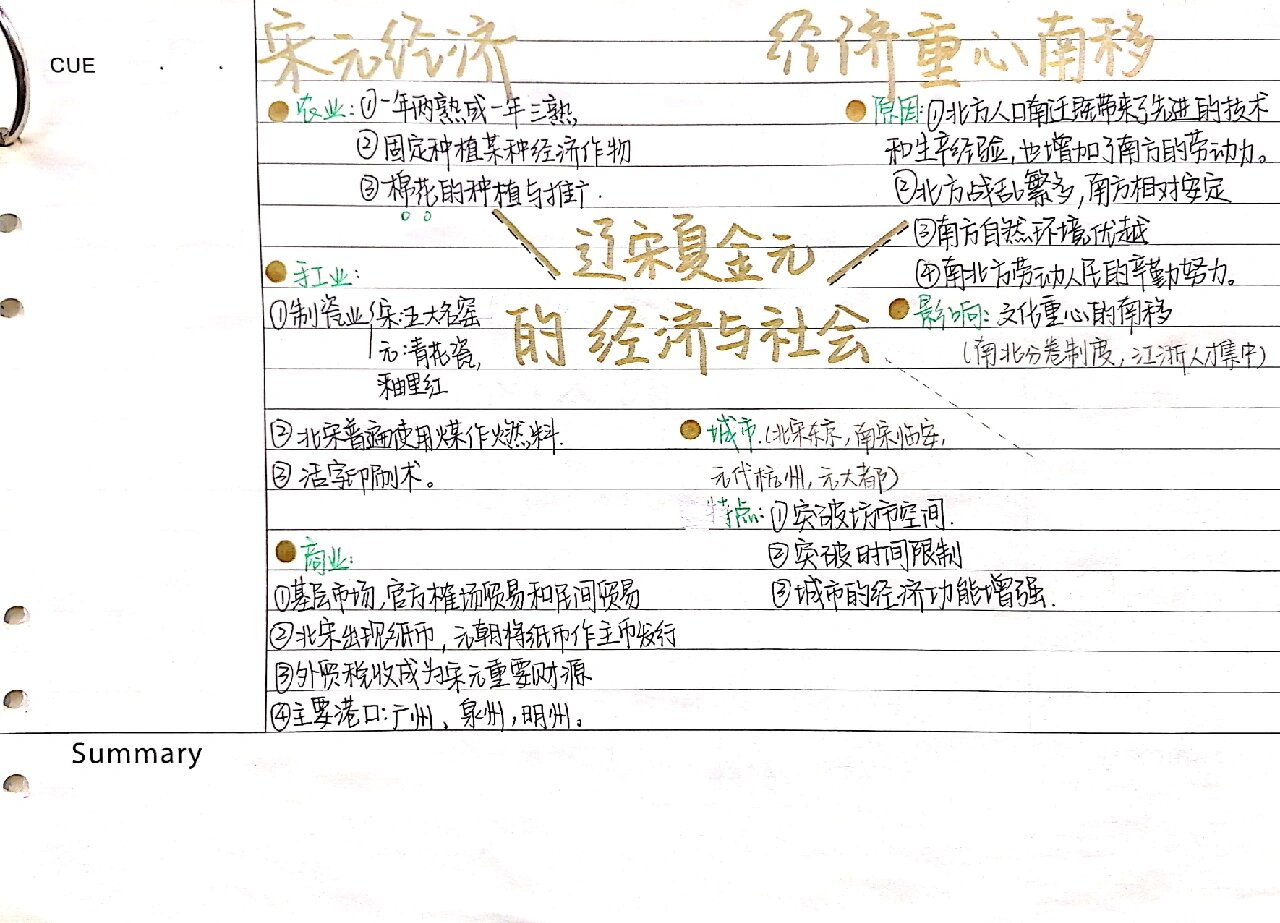 CUE
宋元经济
农业:①一年两熟或一年三熟
②固定种植某种经济作物
③棉花的种植与推广.
手工业:
①制瓷业 宋:五大名窑
元:青花瓷,
釉里红
②北宋普遍使用煤作燃料.
③活字印刷术。
商业:
①基层市场,官方榷场贸易和民间贸易
②北宋出现纸币,元朝将纸币作主币发行
③外贸税收成为宋元重要财源
④主要港口:广州、泉州,明州。
辽宋夏金元
的经济与社会
经济重心南移
原因:①北方人口南迁既带来了先进的技术
和生产经验,也增加了南方的劳动力。
②北方战乱繁多,南方相对安定
③南方自然环境优越
④南北方劳动人民的辛勤努力。
影响:文化重心的南移
(南北分卷制度,江浙人才集中)
城市.(北宋东京,南宋临安,
元代杭州,元大都)
特点:①突破坊市空间.
②突破时间限制
③城市的经济功能增强.
Summary